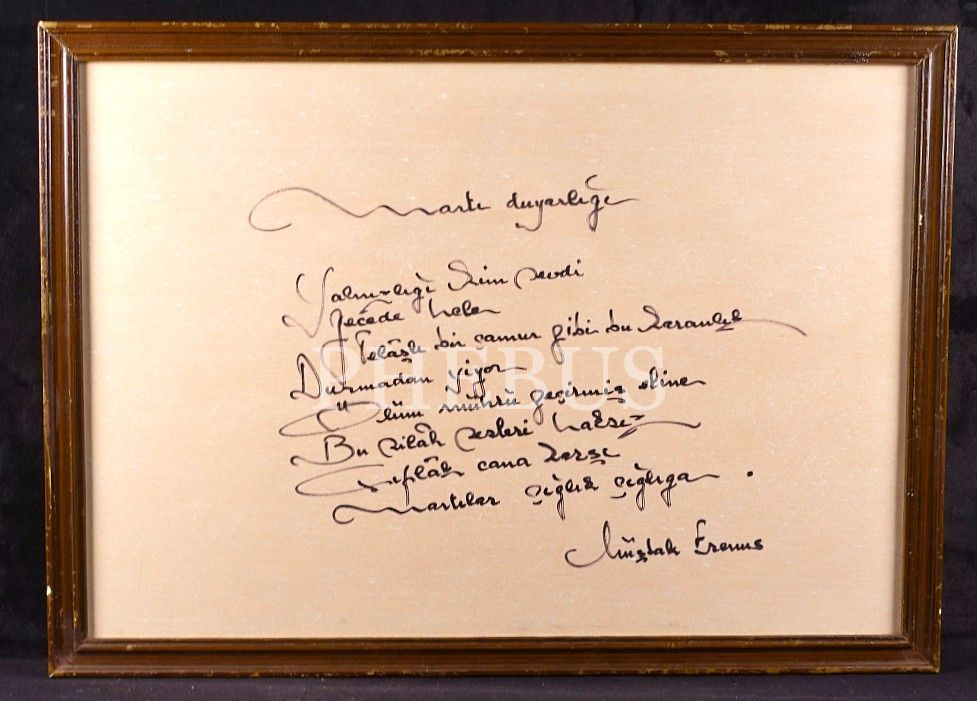 Martı duyarlığı
Yalnızlığı kim sevdi
Gecede hele
Telâşlı bir çamur gibi bu karanlık
Durmadan yiyor
Ölüm mührü geçirmiş eline
Bu silâh sesleri haksız
Çıplak cana karşı
Martılar çığlık çığlığa .
Müştak Erenus
PHEBUS